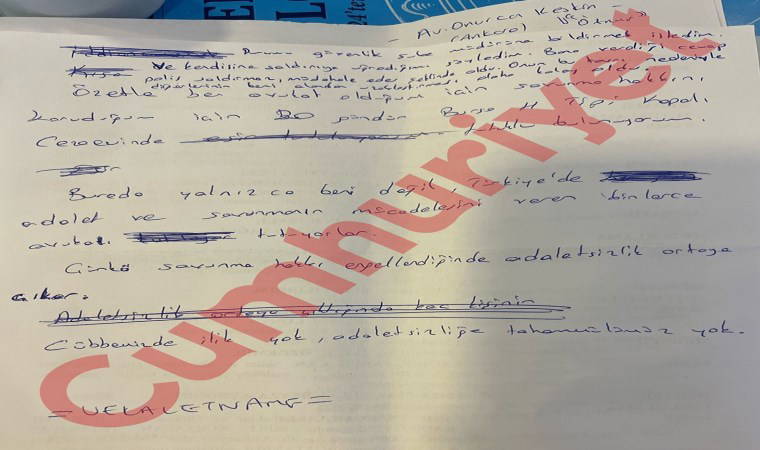 - Av. Onurca Keskin -
(Ankara)
Bunu güvenlik şube müdürüne bildirmek istedim.
Ve kendisine saldırıya uğradığımı söyledim. Bana verdiği cevap
polis saldırmaz, müdahale eder şeklinde oldu. Onun bu tavrı nedeniyle
diğerlerinin beni daha kolay oldu.
Özetle ben avukat olduğum için savunma hakkını
koruduğum için 20 gündür Bursa H Tipi Kapalı
Cezaevinde tutuklu bulunuyorum.
Burada yalnızca beni değil, Türkiye'de
adalet ve savunmanın mücadelesini veren binlerce
avukatı tutuyorlar.
Çünkü savunma hakkı engellendiğinde adaletsizlik ortaya
çıkar.
Adaletsizlik ortaya çıktığında
Cübbemizde ilik yok, adaletsizliğe tahammülümüz yok.
= VEKALETNAME =
Cumhuriyet